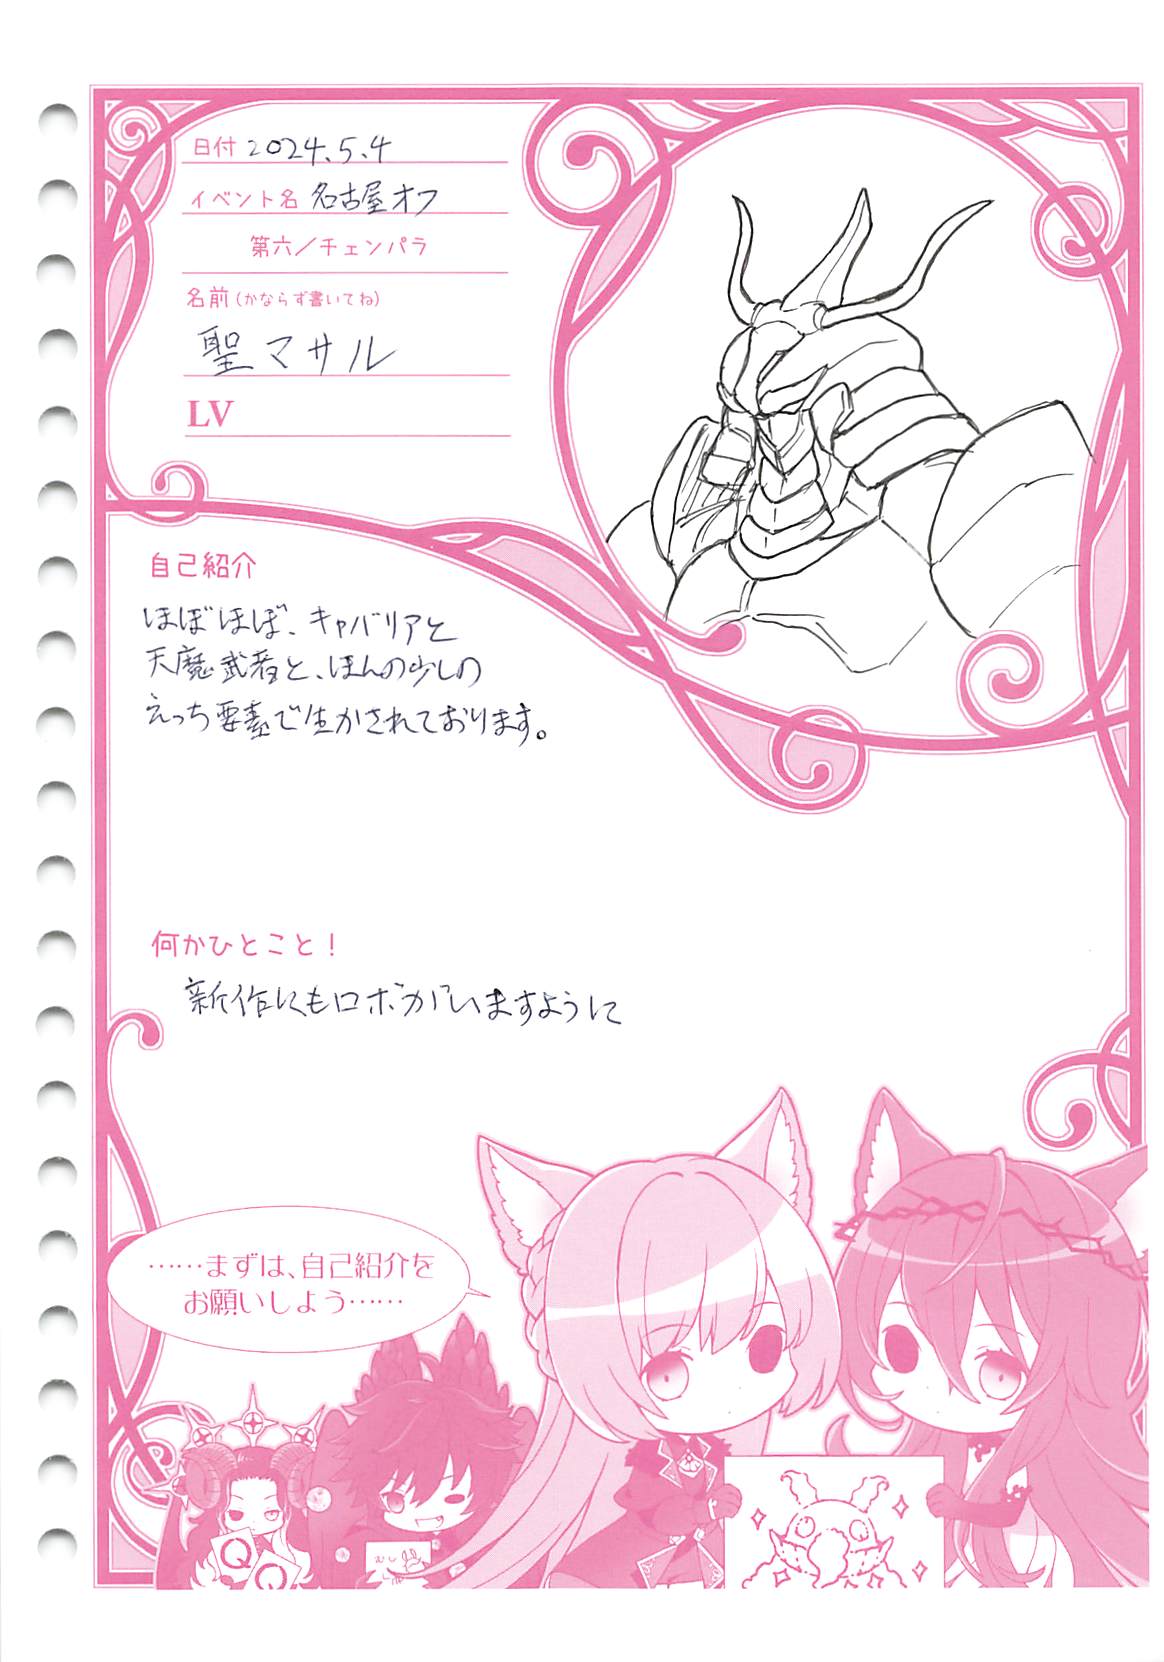 日付 2024.5.4
イベント名 名古屋オフ
第六／チェンパラ
名前(かならず書いてね)
聖マサル
LV
自己紹介
ほぼほぼ、キャバリアと
天魔武者と、ほんの少しの
えっち要素で生かされております。
何かひとこと！
新作にもロボがいますように
……まずは、自己紹介を
お願いしよう……
Q
Q